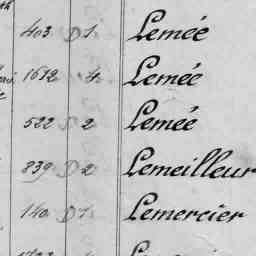 403 D 1 Lemée
1612 4 Lemée
522 2 Lemée
839 D 2 Lemeilleur
140 D 1 Lemercier